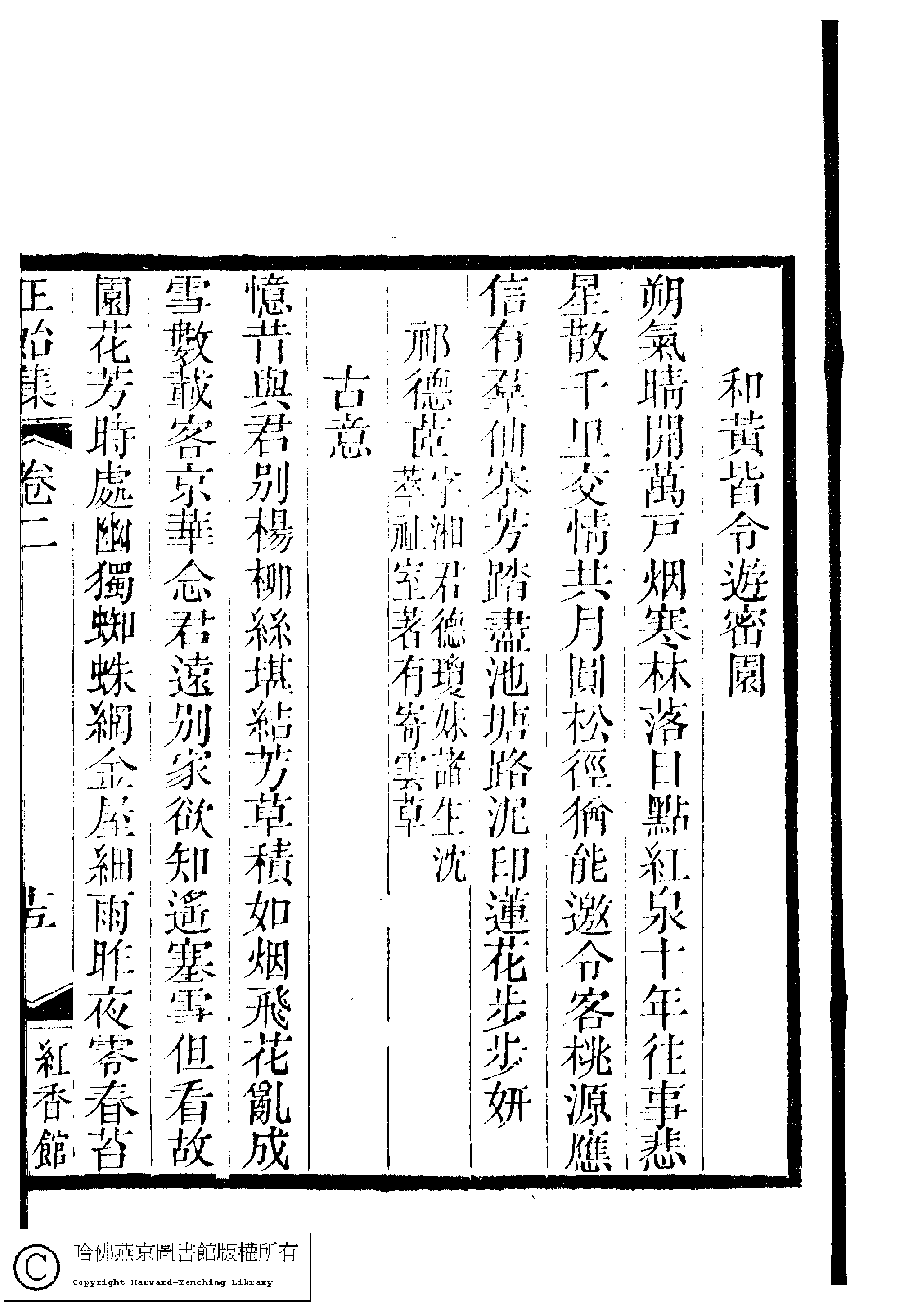 和黃皆令遊密園
朔氣晴開萬戶烟寒林落日點紅泉十年往事悲
星散千里交情共月圓松徑猶能邀令客桃源應
信有羣仙寒芳踏盡池塘路泥印蓮花步步妍
祁德茝字湘君德瓊妹諸生沈
萃祉室著有寄雲草
古意
憶昔與君別楊柳絲堪結芳草積如烟飛花亂成
雪數載客京華念君遠別家欲知遙塞雪但看故
園花芳時處幽獨蜘蛛網金屋細雨昨夜零春苔
正始集 卷二 十五 紅香館
哈佛燕京圖書館版權所有
Copyright Harvard-Yenching Library